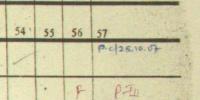 54 55 56 57
P-C/25.10.07
F P-II